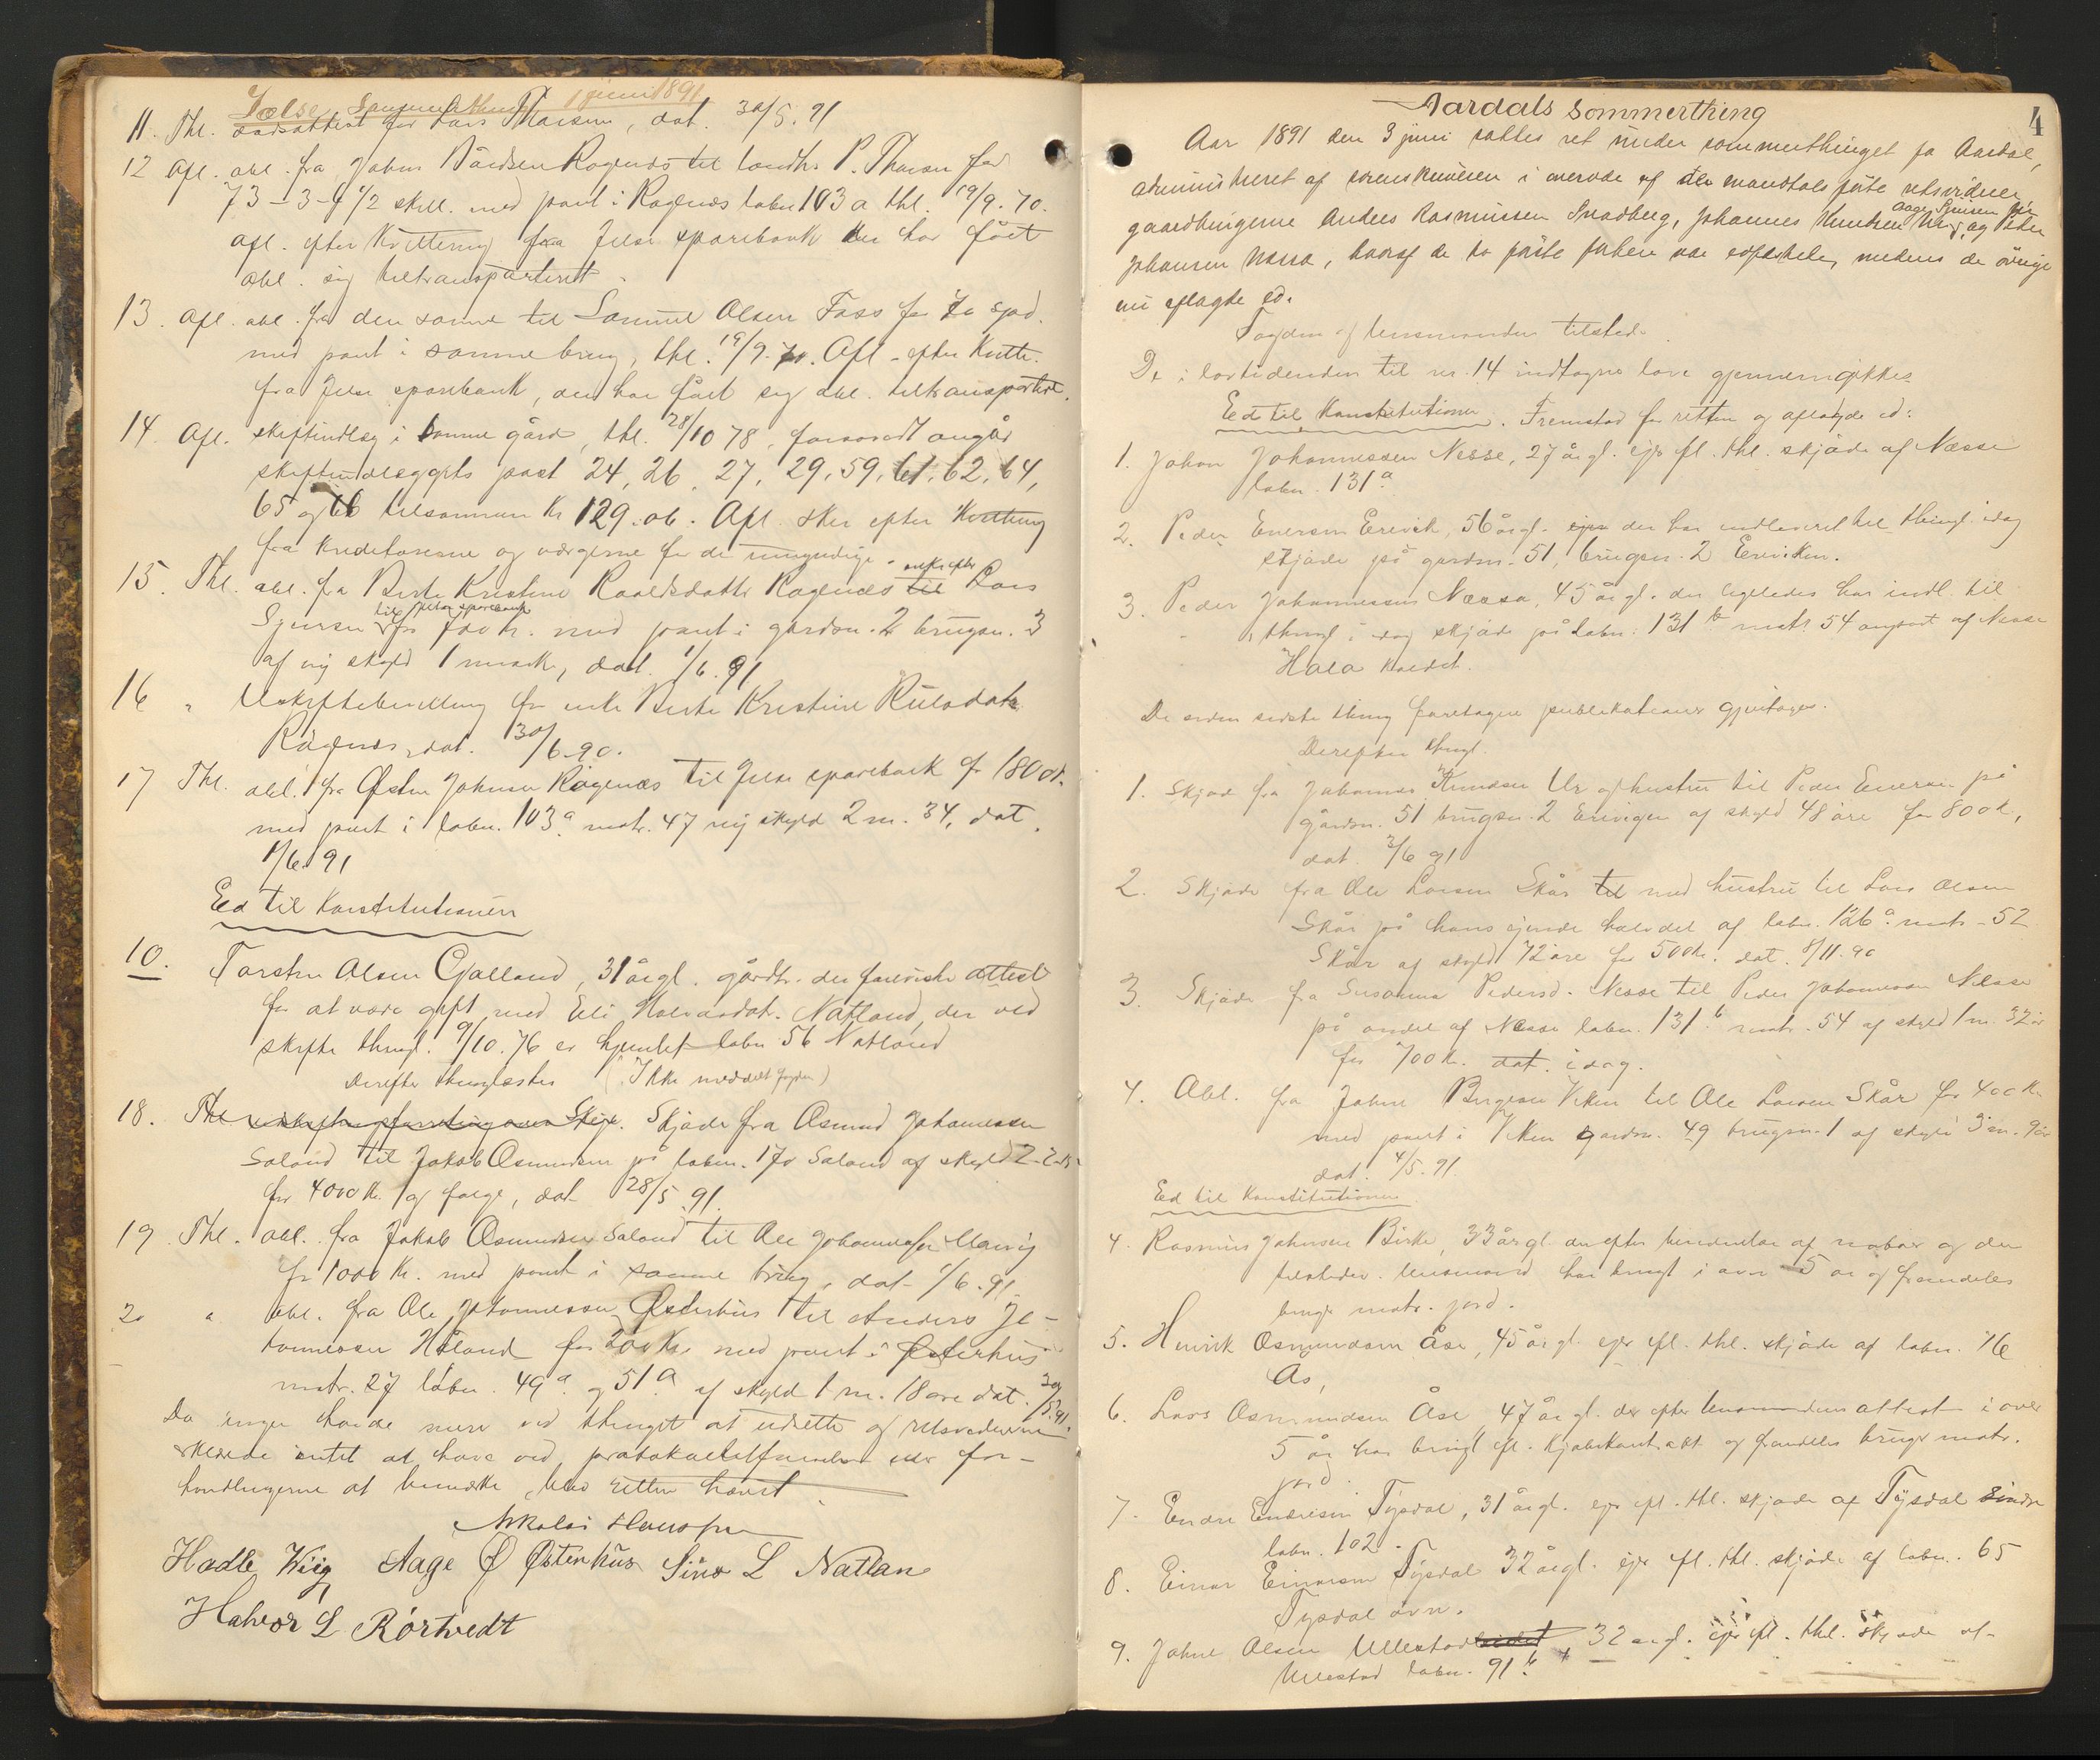 Jelse Sommerthing 1 juni 1891
11. Thl. dødsattest for Lars Thorsen, dat. 30/5. 91
12 Afl. obl. fra Johan Bårdsen Ragnæs til landh. P. Thorsen for
73-3-4 1/2 skill. med pant i Ragnæs labn 103 a thl. 19/9. 70.
afl. efter kvittering fra Jelse sparebank der har fået
obl. sig tiltransporteret.
13. Afl. obl. fra den samme til Samuel Olsen Foss for 70 spd.
med pant i samme brug, thl. 19/9. 70. Afl. efter kvitt.
fra Jelse sparebank, der har fået sig obl. tiltransportert.
14. Afl. skifteudlæg i samme gård, thl. 28/10 78, forsavidt angår
skifteudlæggets post 24, 26, 27, 29, 59, 61, 62, 64,
65 og 66 tilsammen Kr 129.06. Afl. sker efter kvittering
fra kreditorerne og værgerne for de umyndige.
15. Thl. obl. fra Berte Kristine Roaldsdatter Ragnæs enke efter Lars
Sjursen til Jelse sparebank for 700 kr. med pant i gårdsn. 2 brugsn. 3
af ny skyld 1 mark, dat. 1/6. 91
16 " Uskiftebevilling for enke Berte Kristine
Ragnæs, dat. 30/6. 90.
17 Thl. obl. fra Østen Johnsen Ragnæs til Jelse sparebank for 1800 kr.
med pant i labn. 103 a matr. 47 ny skyld 2 m. 34, dat.
1/6. 91
Ed til Konstitutionen
10. Torsten Olsen Gjalland, 31 årgl. gårdbr. der foreviste attest
for at være gift med Eli Halvorsdat. Natland, der ved
skifte thingl. 9/10. 76 er hjemlet labn 56 Natland
Derefter thinglæstes (Ikke meddelt fogden)
18. Thl. Skjøde fra Osmund Johannessen
Saland til Jakob Osmundsen på labn. 170 Saland af skyld 2-2-
for 4000 kr. og folge, dat 28/5 91.
19. Thl. obl. fra Jakob Osmundsen Saland til Ole Johannessen
for 1000 kr. med pant i samme brug, dat 1/6. 91.
20 " obl. fra Ole Johannessen Østerhus til Anders Jo-
hannessen Håland for 200 kr. med pant i Østerhus
matr. 27 labn. 49 a og 51 a af skyld 1 m. 18 øre dat. 30/5 91.
Da ingen havde mere ved thinget at udrette og retsvidnerne
erklærede intet at have ved protokoltilførselen eller for-
handlingerne at bemærke, blev retten hævet.
Nikolai
Hadle Wiig Aage Ø Østerhus Sivo L Natlan
Halvor L Rørtvedt
4
Aardals Sommerthing
Aar 1891 den 3 juni sattes ret under sommerthinget for Aardal,
administreret af sorenskriveren i overvær af de mandtals første retsvidner
gaardbrugerne Anders Rasmussen Svadberg, Johannes Knudsen Ur, Aage og Peder
Johansen Nessa, hvoraf de to første forhen var edfæstede, medens de øvrige
nu aflagde ed.
Fogden og lensmanden tilstede.
De i lovtidenden til nr. 14 indtagne love gjennemgikkes.
Ed til Konstitutionen. Fremstod for retten og aflagde ed:
1. Johan Johannessen Nesse, 27 årgl. ejer ifl. thl. skjøde af Næsse
labn. 131 a
2. Peder Enersen Erevik, 56 årgl. ejer der har indleveret til thingl. idag
skjøde på gardsn. 51, brugsn. 2 Ereviken.
3. Peder Johannessen Næssa, 45 årgl. der ligeledes har indl. til
thingl i dag skjøde på labn. 131 b matr. 54 anpart af Nesse
Hala kaldet.
De siden sidste thing foretagne publikationer gjentages.
Derefter thingl.
1. Skjøde fra Johannes Knudsen Ur og hustru til Peder Enersen på
gårdsn. 51 brugsn. 2 Erevigen af skyld 48 øre for 800 kr,
dat. 3/6 91
2. Skjøde fra Ole Larsen Skår til med hustru til Lars Olsen
Skår på hans ejende halvdel af labn. 126 a matr. 52
Skår af skyld 72 øre for 500 kr. dat. 8/11. 90
3. Skjøde fra Susanna Pedersd. Nesse til Peder Johannessen Nesse
på andel af Nesse labn. 131 b matr. 54 af skyld 1 m. 32 ør
for 700 kr. dat. idag.
4. Obl. fra Johan Birgesen Viken til Ole Larsen Skår for 400 kr
med pant i Viken gardsn. 49 brugsn. 1 af skyld 3 m. 9 ør
dat. 4/5. 91.
Ed til Konstitutionen
4. Rasmus Johnsen Birke, 33 årgl. der efter af nabor og den
tilstedev. lensmand har brugt i over 5 år og fremdeles
bruger matr. jord.
5. Henrik Osmundsen Åse, 45 årgl. ejer ifl. thl. skjøde af labn. 76
Ås,
6. Lars Osmundsen Åse, 47 årgl. der efter lensmandens attest i over
5 år har brugt ifl. kjøbekontrakt og fremdeles bruger matr.
jord.
7. Endre Endresen Tysdal, 31 årgl. ejer ifl. thl. skjøde af Tysdal
labn. 102.
8. Einar Einarsen Tysdal 32 årgl. ejer ifl. thl. skjøde af labn. 65
Tysdal øvn.
9. Johan Olsen Ullestad, 32 årgl. ejer ifl. thl. skjøde af
Ullestad labn. 91 b